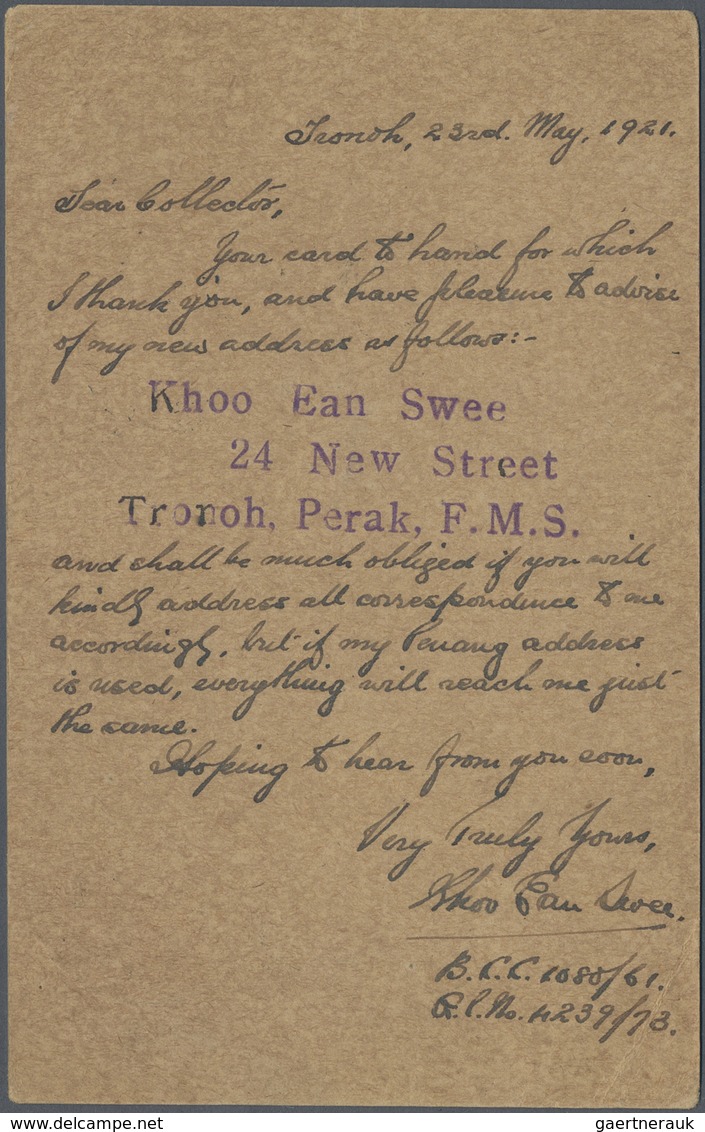 Tronoh, 23rd. May, 1921.
Dear Collector,
Your card to hand for which
I thank you, and have pleasure to advise
of my new address as follows:-
Khoo Ean Swee
24 New Street
Tronoh, Perak, F.M.S.
and shall be much obliged if you will
kindly address all correspondence to me
accordingly, but if my Penang address
is used, everything will reach me just
the same.
Hoping to hear from you soon,
Very Truly Yours,
Khoo Ean Swee.
B.C.C. 1080/61.
No. 4239/73.
gaertnerauk